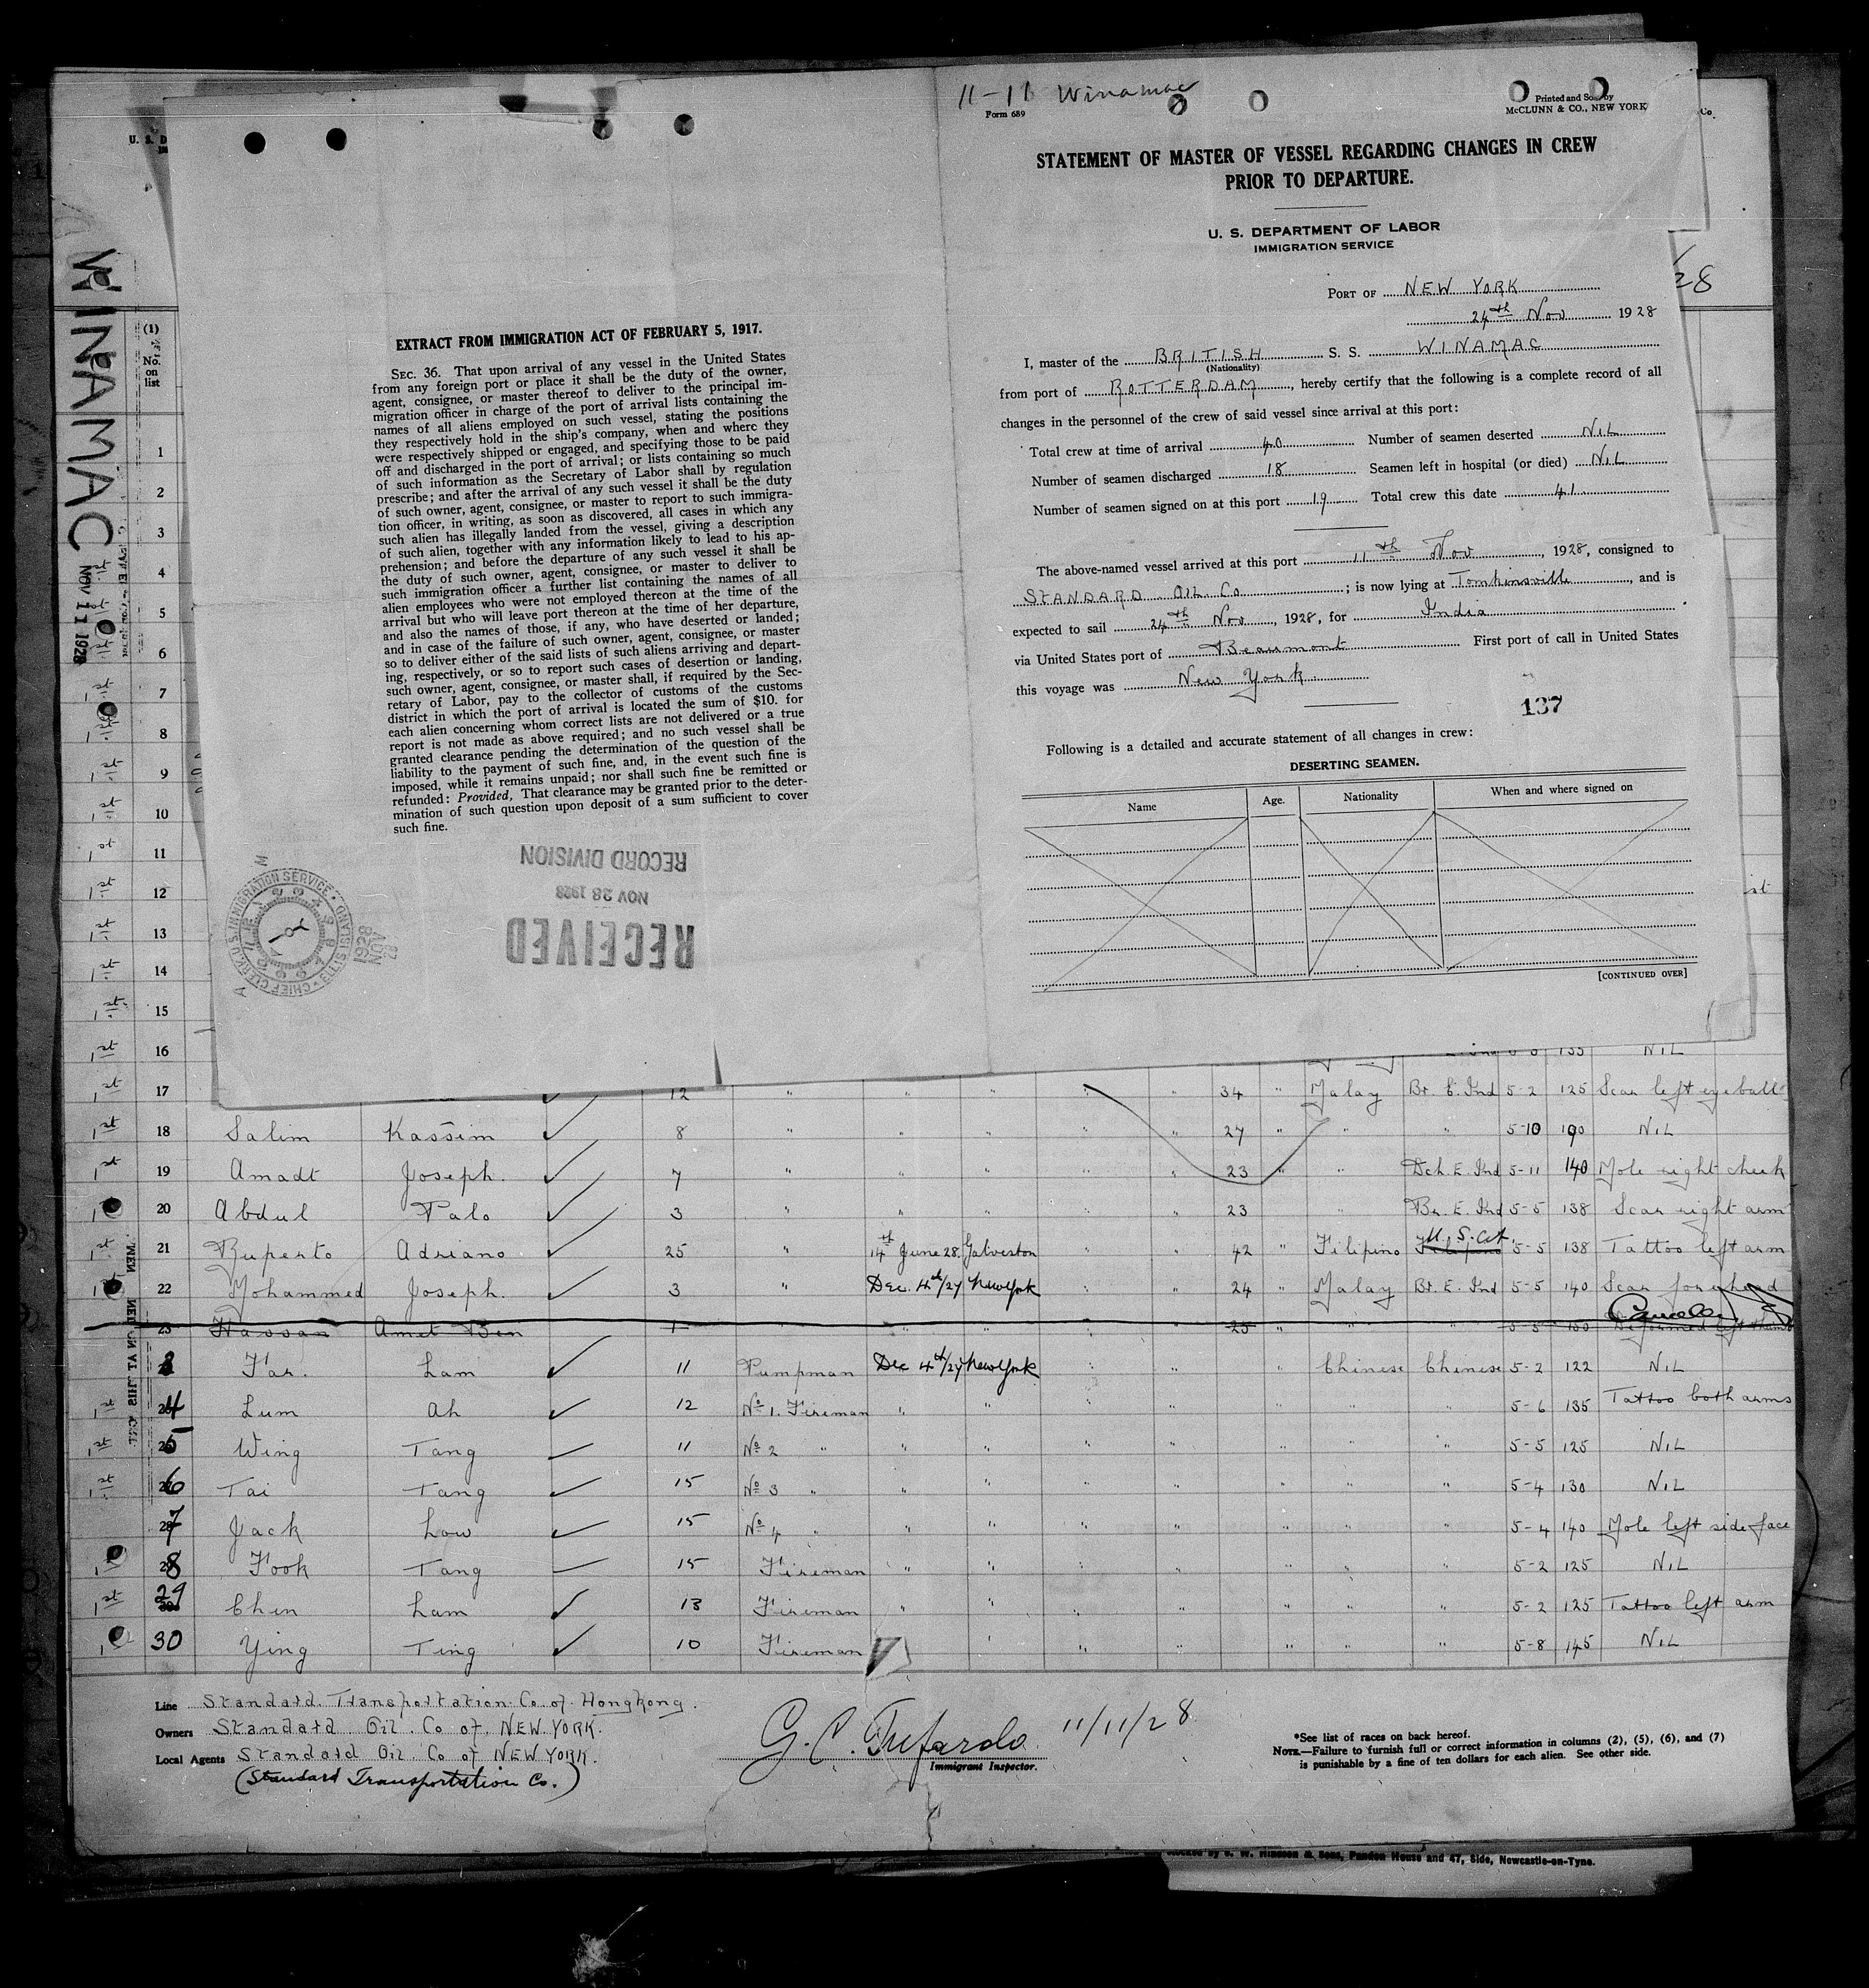 11-11 Winamac
Form 689
Printed and Sold by
McCLUNN & CO., NEW YORK
Co.
U. S. D
STATEMENT OF MASTER OF VESSEL REGARDING CHANGES IN CREW
PRIOR TO DEPARTURE.
U. S. DEPARTMENT OF LABOR
IMMIGRATION SERVICE
PORT OF NEW YORK
24th Nov 1928
28
I, master of the BRITISH S. S. WINAMAC
(Nationality)
from port of ROTTERDAM, hereby certify that the following is a complete record of all
changes in the personnel of the crew of said vessel since arrival at this port:
Total crew at time of arrival 40 Number of seamen deserted NIL
Number of seamen discharged 18 Seamen left in hospital (or died) NIL
Number of seamen signed on at this port 19 Total crew this date 41
The above-named vessel arrived at this port 11th Nov, 1928, consigned to
STANDARD OIL Co; is now lying at Tomkinsville, and is
expected to sail 24th Nov, 1928, for India
via United States port of Beaumont First port of call in United States
this voyage was New York
137
Following is a detailed and accurate statement of all changes in crew:
DESERTING SEAMEN.
Name Age. Nationality When and where signed on
[CONTINUED OVER]
EXTRACT FROM IMMIGRATION ACT OF FEBRUARY 5, 1917.
SEC. 36. That upon arrival of any vessel in the United States
from any foreign port or place it shall be the duty of the owner,
agent, consignee, or master thereof to deliver to the principal im-
migration officer in charge of the port of arrival lists containing the
names of all aliens employed on such vessel, stating the positions
they respectively hold in the ship's company, when and where they
were respectively shipped or engaged, and specifying those to be paid
off and discharged in the port of arrival; or lists containing so much
of such information as the Secretary of Labor shall by regulation
prescribe; and after the arrival of any such vessel it shall be the duty
of such owner, agent, consignee, or master to report to such immigra-
tion officer, in writing, as soon as discovered, all cases in which any
such alien has illegally landed from the vessel, giving a description
of such alien, together with any information likely to lead to his ap-
prehension; and before the departure of any such vessel it shall be
the duty of such owner, agent, consignee, or master to deliver to
such immigration officer a further list containing the names of all
alien employees who were not employed thereon at the time of the
arrival but who will leave port thereon at the time of her departure,
and also the names of those, if any, who have deserted or landed;
and in case of the failure of such owner, agent, consignee, or master
so to deliver either of the said lists of such aliens arriving and depart-
ing, respectively, or so to report such cases of desertion or landing,
such owner, agent, consignee, or master shall, if required by the Sec-
retary of Labor, pay to the collector of customs of the customs
district in which the port of arrival is located the sum of $10. for
each alien concerning whom correct lists are not delivered or a true
report is not made as above required; and no such vessel shall be
granted clearance pending the determination of the question of the
liability to the payment of such fine, and, in the event such fine is
imposed, while it remains unpaid; nor shall such fine be remitted or
refunded: Provided, That clearance may be granted prior to the deter-
mination of such question upon deposit of a sum sufficient to cover
such fine.
RECEIVED
NOV 28 1928
RECORD DIVISION
CHIEF CLERK U.S. IMMIGRATION SERVICE ELLIS ISLAND
1928 NOV
WINAMAC
NOV 11 1928
(1)
No.
on
list
1
2
3
4
5
6
7
8
9
10
1st 11
1st 12
1st 13
1st 14
1st 15
1st 16 135 NIL
1st 17 12 " " " " " 34 " Malay Br. E. Ind 5-2 125 Scar left eyeball
1st 18 Salim Kassim 8 " " " " " 27 " " " 5-10 190 NIL
1st 19 Amadt Joseph. 7 " " " " " 23 " " Dch. E. Ind 5-11 140 Mole right cheek
20 Abdul Palo 3 " " " " " 23 " Br. E. Ind 5-5 138 Scar right arm
1st 21 Ruperto Adriano 25 " 14th June 28. Galveston " " 42 " Filipino U.S. Cit. 5-5 138 Tattoo left arm
22 Mohammed Joseph. 3 " Dec. 4th/27 New York " " 24 " Malay Br. E. Ind 5-5 140 Scar forehead
23 Hassan Amet Ben 1 25 5-5 150 Deformed left thumb
Cancelled
3 Far. Lam 11 Pumpman Dec 4th/27 New York " " " Chinese Chinese 5-2 122 NIL
1st 4 Lum Ah 12 No 1. Fireman " " " " " " " 5-6 135 Tattoo both arms
1st 5 Wing Tang 11 No 2 " " " " " " " " 5-5 125 NIL
1st 6 Tai Tang 15 No 3 " " " " " " " " 5-4 130 NIL
7 Jack Low 15 No 4 " " " " " " " " 5-4 140 Mole left side face
8 Fook Tang 15 Fireman " " " " " " " 5-2 125 NIL
1st 29 Chen Lam 13 Fireman " " " " " " " 5-2 125 Tattoo left arm
30 Ying Ting 10 Fireman " " " " " " 5-8 145 NIL
Line Standard Transportation Co. of Hongkong.
Owners Standard Oil Co of NEW YORK.
Local Agents Standard Oil Co of NEW YORK.
(Standard Transportation Co.)
11/11/28
Immigrant Inspector.
*See list of races on back hereof.
NOTE.—Failure to furnish full or correct information in columns (2), (5), (6), and (7)
is punishable by a fine of ten dollars for each alien. See other side.
Sons, Pandon House and 47, Side, Newcastle-on-Tyne.